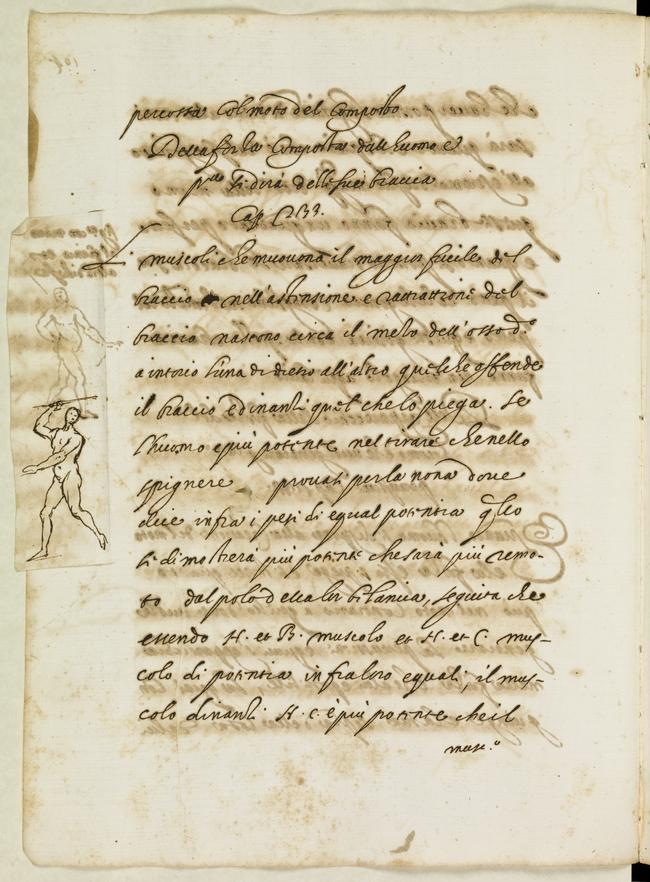 percossa col moto del composto.
Della forza composta dall'huomo e
p.ª si dirà delle sue braccia
Cap. C233.
I muscoli che muovono il maggior fucile del
braccio nell'astensione e rattrattione del
braccio nascono circa il mezo dell'osso d.º
aiutorio l'una di dietro all'altro quel che offende
il braccio e dinanzi quel che lo piega. Se
l'huomo e più potente nel tirare che nello
spignere provasi per la nona dove
dice infra i pesi di equal potentia q.llo
si dimostrerà più potente che sarà più remo-
to dal polo della lor bilancia, seguita che
essendo N. et B. muscolo et N. et C. mus-
colo di potentia infra loro equali, il mus-
colo dinanzi N. C. è più potente che il
musc.º